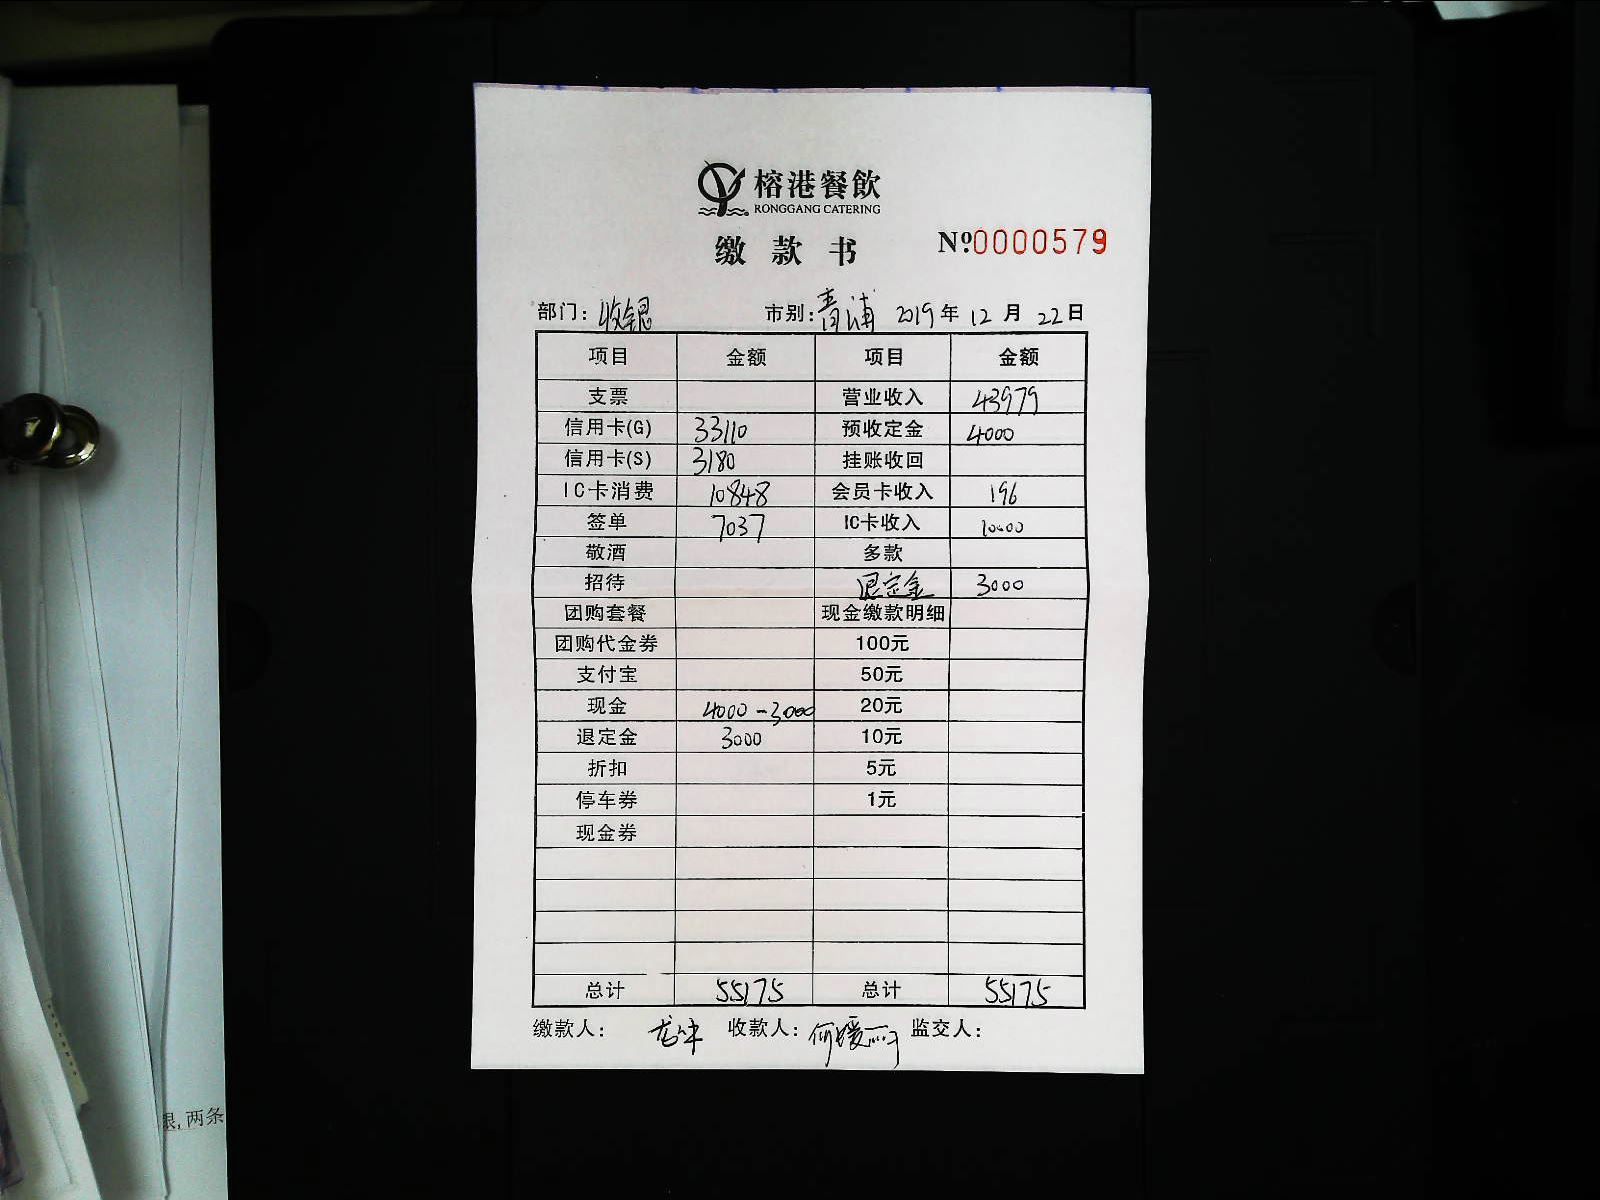 榕港餐飲
RONGGANG CATERING
缴款书
Nº0000579
部门：收银 市别：青浦 2019年12月22日
项目 金额 项目 金额
支票 营业收入 43979
信用卡(G) 33110 预收定金 4000
信用卡(S) 3180 挂账收回
IC卡消费 10848 会员卡收入 196
签单 7037 IC卡收入 10000
敬酒 多款
招待 退定金 3000
团购套餐 现金缴款明细
团购代金券 100元
支付宝 50元
现金 4000-3000 20元
退定金 3000 10元
折扣 5元
停车券 1元
现金券
总计 55175 总计 55175
缴款人： 收款人： 监交人：
银,两条